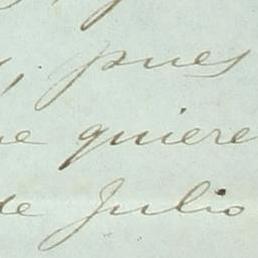 pues
quiere
de Julio